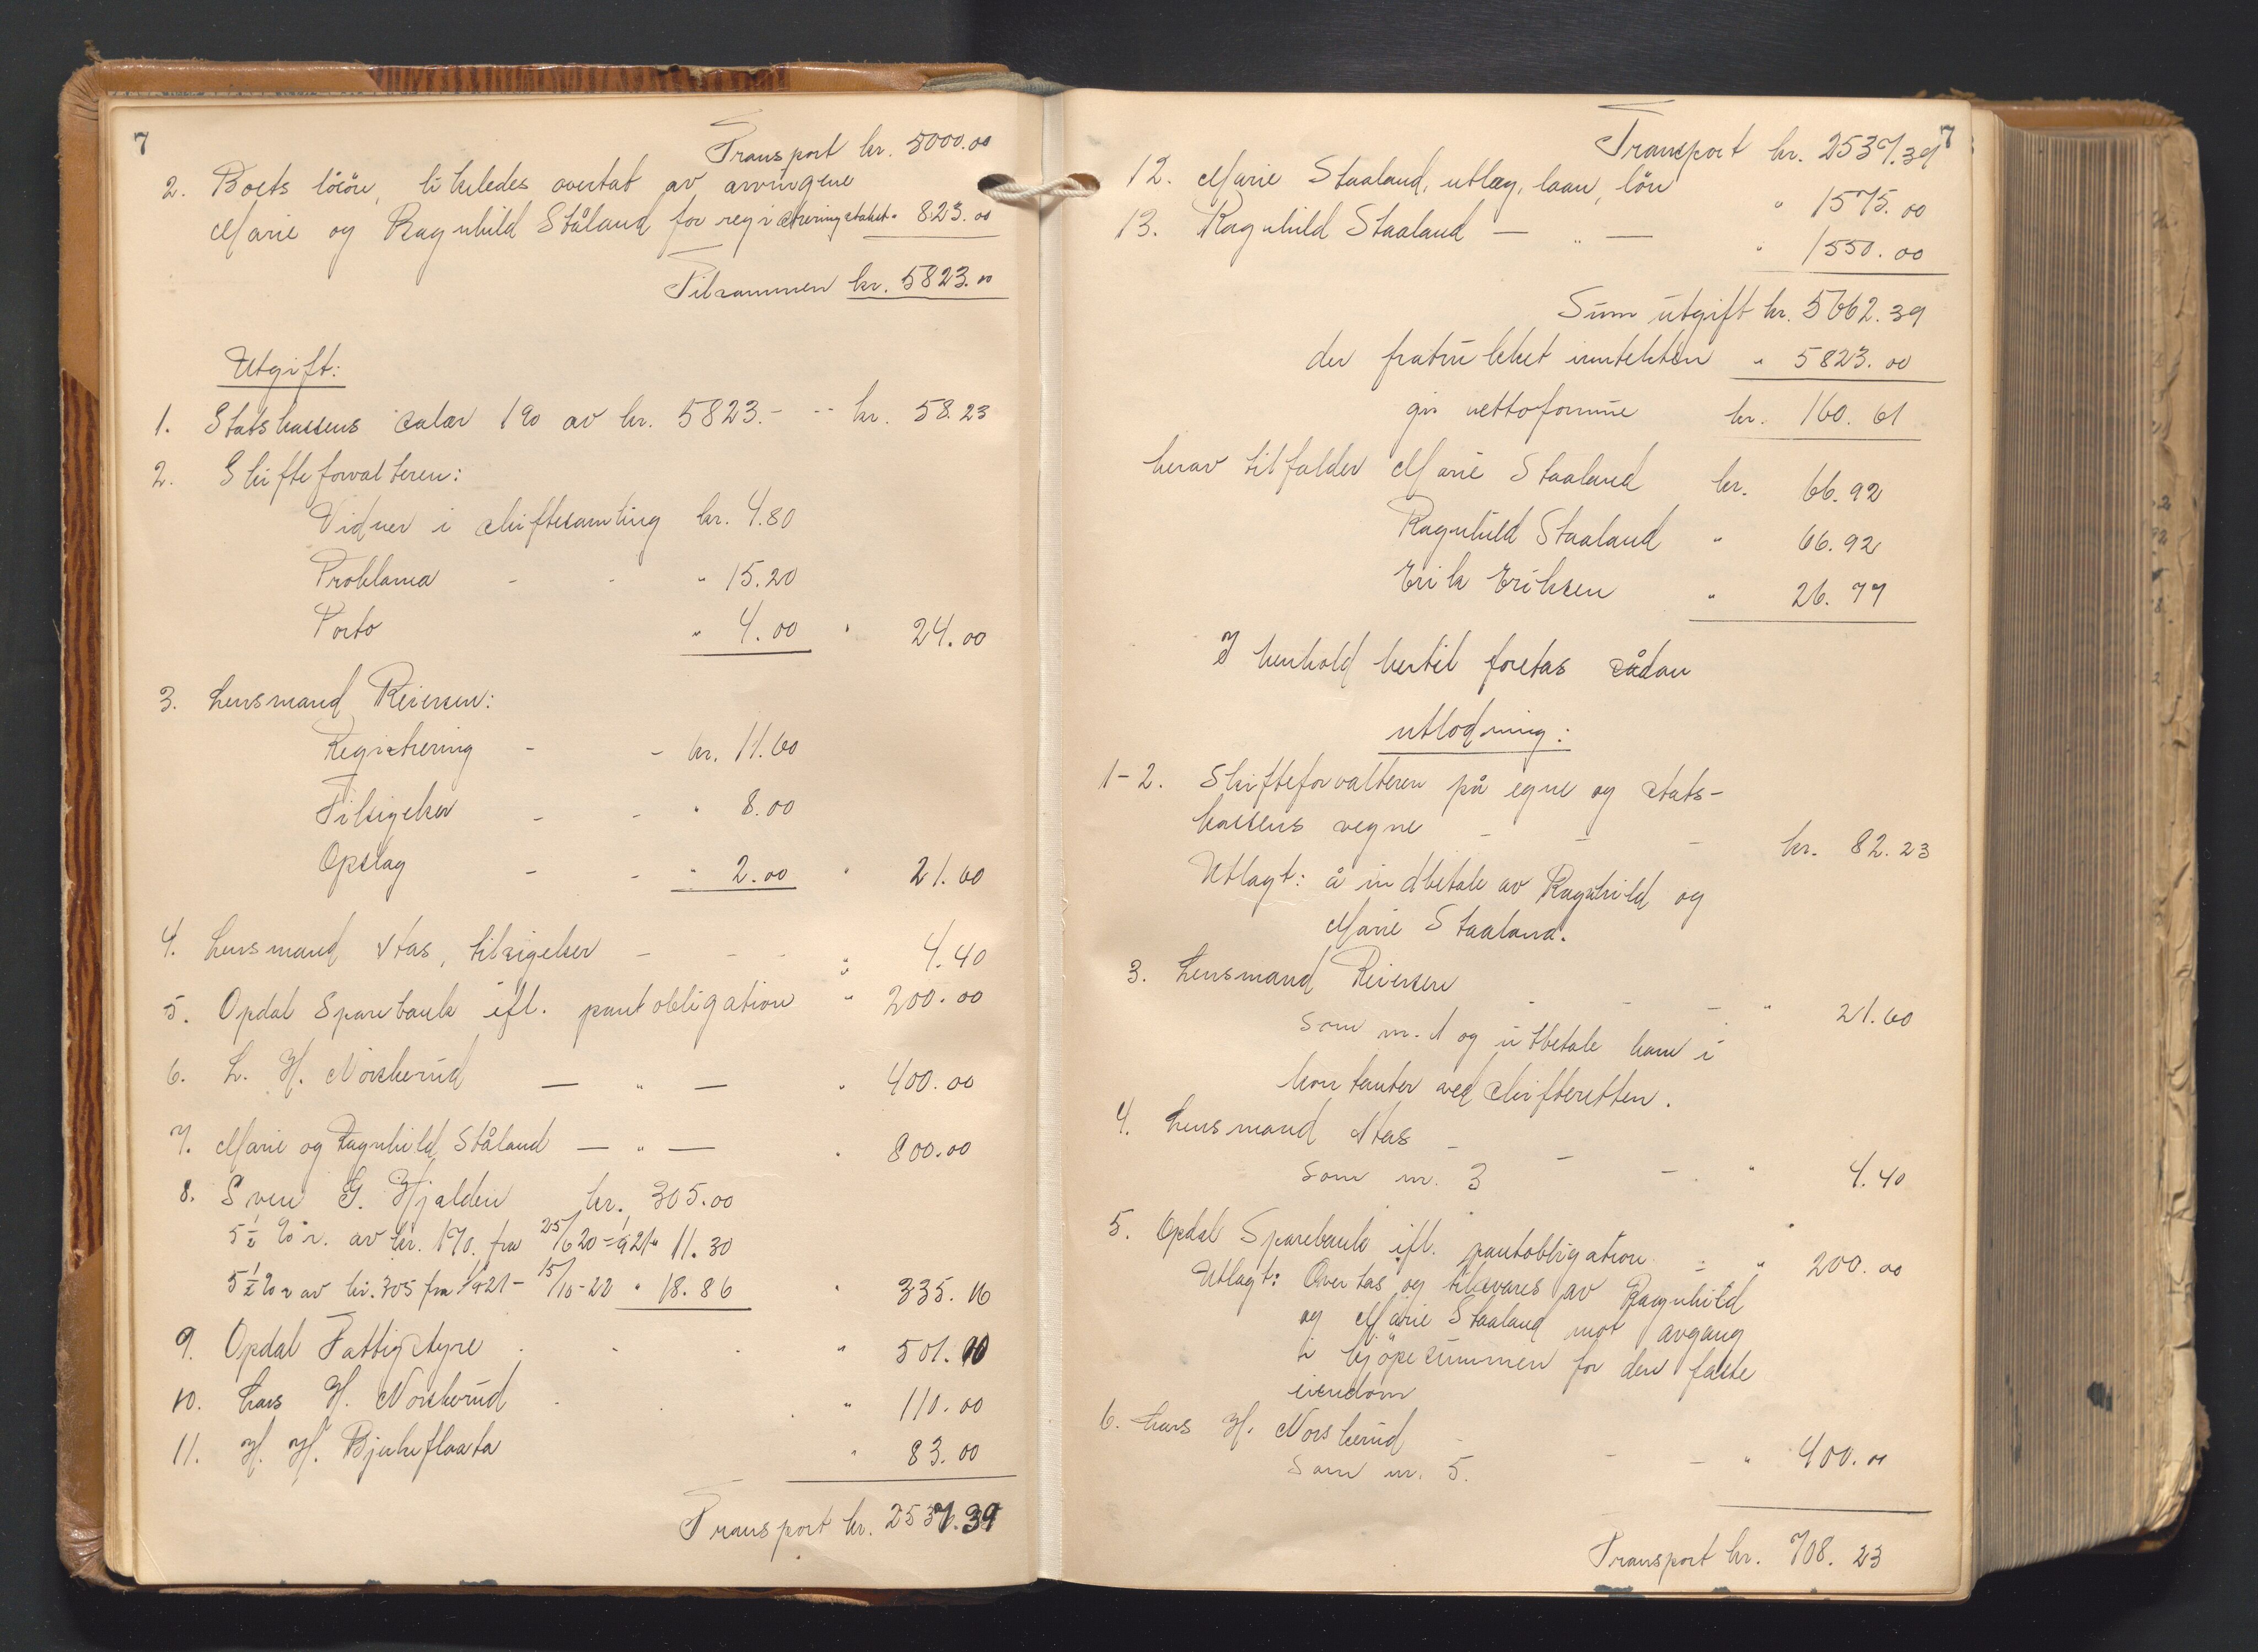 7
Transport kr. 5000.00
2. Boets løsøre, likeledes overtat av arvingene
Marie og Ragnhild Ståland for registreringstakst " 823.00
Tilsammen kr. 5823.00
Utgift:
1. Statskassens salær 1% av kr. 5823.- -- kr. 58.23
2. Skifteforvalteren:
Vidner i skiftesamling kr. 4.80
Proklama - - " 15.20
Porto " 4.00 " 24.00
3. Lensmand Reiersen:
Registrering - - kr. 11.60
Tilsigelser - - " 8.00
Opslag - - " 2.00 " 21.60
4. Lensmand Aas, tilsigelser - - - " 4.40
5. Opdal Sparebank ifl. pantobligation " 200.00
6. L. H. Norskerud — " — " 400.00
7. Marie og Ragnhild Ståland — " — " 800.00
8. Sven G. Hjalden kr. 305.00
5½ % r. av kr. 170. fra 25/6 20 - 1/9 21 " 11.30
5½ % r av kr. 305 fra 1/9 21 - 15/10-22 " 18.86 " 335.16
9. Opdal Fattigstyre . - . " 501.40
10. Lars H. Norskerud . . . " 110.00
11. H. H. Bjerkeflaata " 83.00
Transport kr. 2537.39
7
Transport kr. 2537.39
12. Marie Staaland, utlæg, laan, løn " 1575.00
13. Ragnhild Staaland — " — " 1550.00
Sum utgift kr. 5662.39
der fratrukket inntekten " 5823.00
gir nettoformue kr. 160.61
herav tilfalder Marie Staaland kr. 66.92
Ragnhild Staaland " 66.92
Erik Eriksen " 26.77
I henhold hertil foretas sådan
utlodning:
1-2. Skifteforvalteren på egne og stats-
kassens vegne - - - kr. 82.23
Utlagt: å indbetale av Ragnhild og
Marie Staaland.
3. Lensmand Reiersen - - - " 21.60
Som nr. 1 og utbetale ham i
kontanter ved skifteretten.
4. Lensmand Aas - - - " 4.40
Som nr. 3
5. Opdal Sparebank ifl. pantobligation - " 200.00
Utlagt: Overtas og tilsvares av Ragnhild
og Marie Staaland mot avgang
i kjøpesummen for den faste
eiendom
6. Lars H. Norskerud - - - " 400.00
Som nr. 5.
Transport kr. 708.23